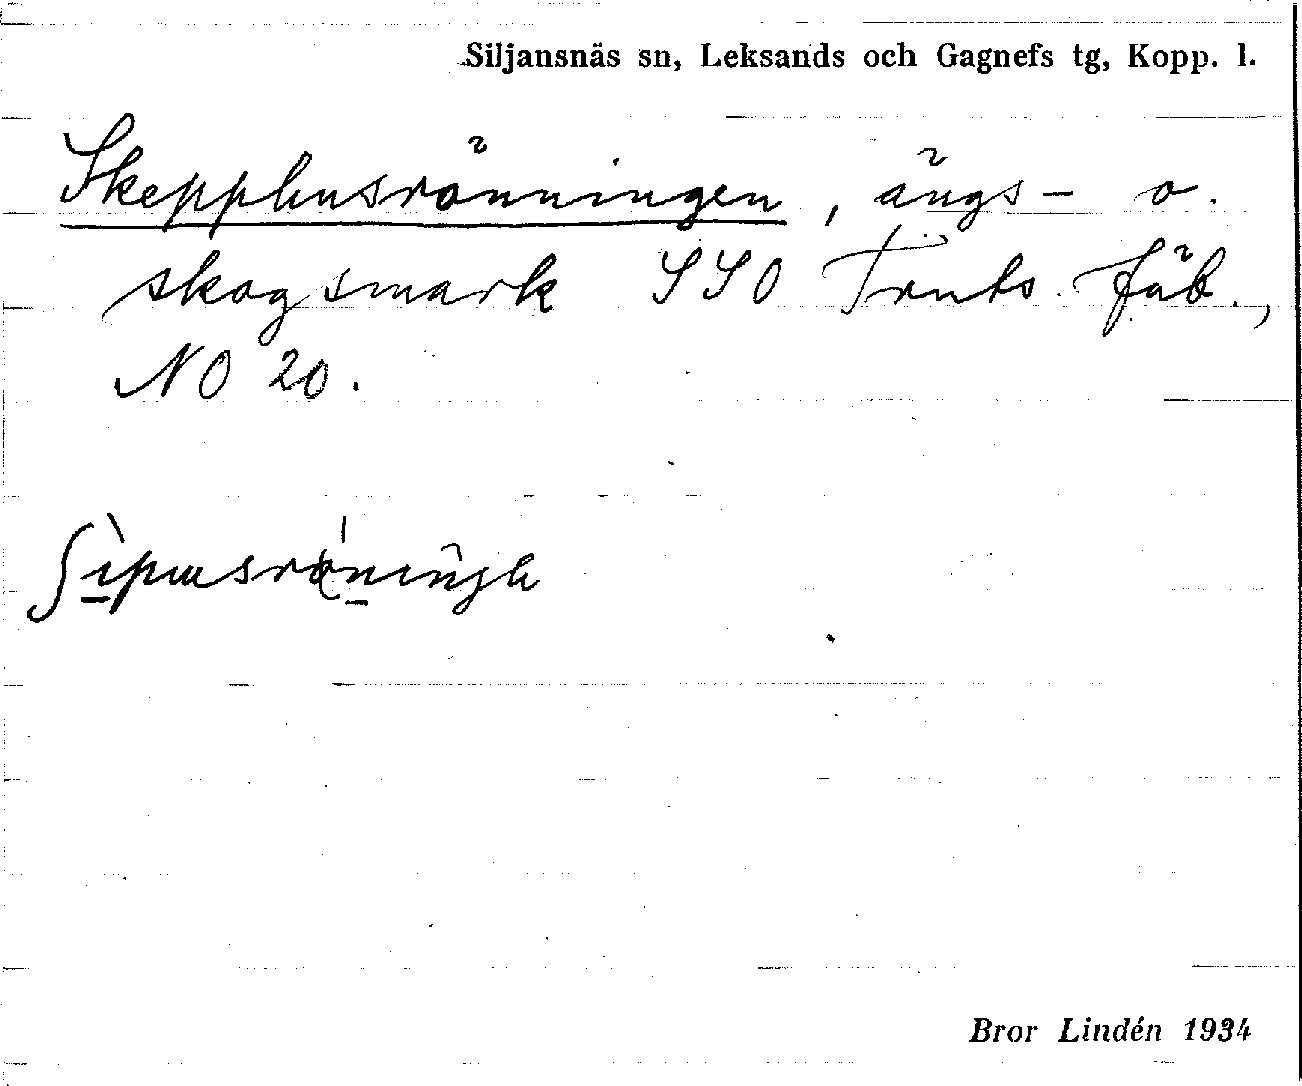 Siljansnäs sn, Leksands och Gagnefs tg, Kopp. l.
Skepphusrönningen, ängs- o.
skogsmark SSO Trüts fäb.,
NO 20.
Bror Lindén 1934